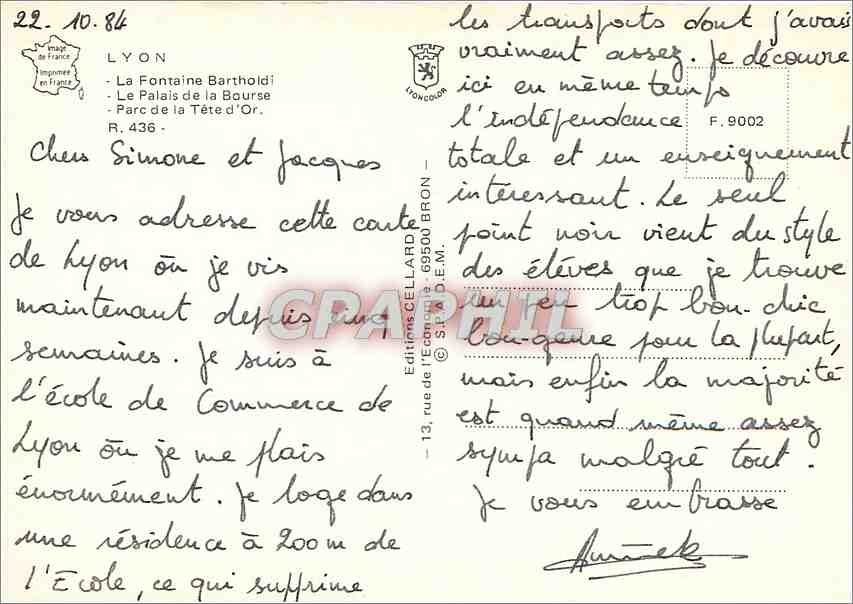 22.10.84
Image
de France
Imprimée
en France
LYON
- La Fontaine Bartholdi
- Le Palais de la Bourse
- Parc de la Tête d'Or.
R. 436 -
Chers Simone et Jacques
Je vous adresse cette carte
de Lyon où je vis
maintenant depuis cinq
semaines. Je suis à
l'école de Commerce de
Lyon où je me plais
énormément. Je loge dans
une résidence à 200m de
l'Ecole, ce qui supprime
LYONCOLOR
Editions CELLARD
- 13, rue de l'Economie - 69500 BRON -
© S.P.A.D.E.M.
CPAPHIL
F. 9002
les transports dont j'avais
vraiment assez. Je découvre
ici en même temps
l'indépendance
totale et un enseignement
intéressant. Le seul
point noir vient du style
des élèves que je trouve
un peu trop bon-chic
bon-genre pour la plupart,
mais enfin la majorité
est quand même assez
sympa malgré tout.
Je vous embrasse